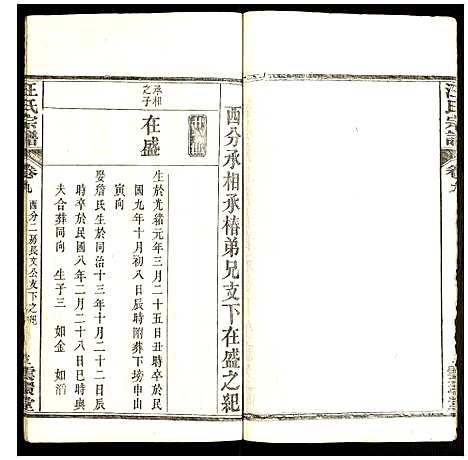 汪氏宗譜
西分承相承椿弟兄支下在盛之紀
承相之子
在盛
生於光緒元年三月二十五日丑時卒於民
國九年十月初八日辰時附葬下塝申山
寅向
娶詹氏生於同治十三年十月二十二日辰
時卒於民國八年二月二十八日巳時與
夫合葬同向 生子三 如金 如滔
汪氏宗譜
卷九
西分二房長文公支下之紀